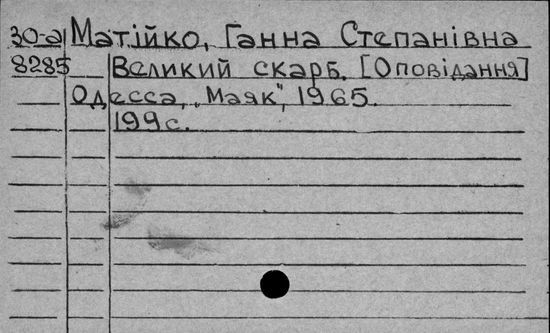 30-а Матійко, Ганна Степанівна
8285 Великий скарб. [Оповідання]
Одесса, „Маяк", 1965.
199с.